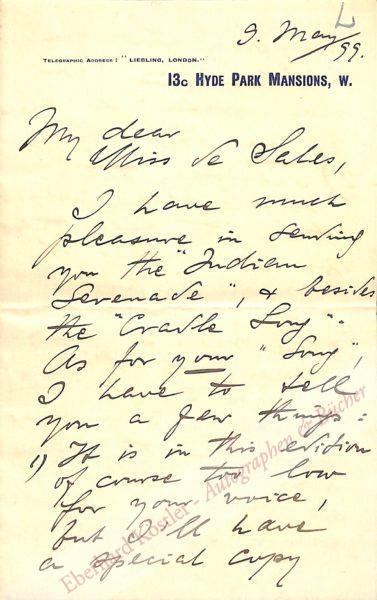 9. May/99.
TELEGRAPHIC ADDRESS: "LIEBLING, LONDON."
13C HYDE PARK MANSIONS, W.
My dear
Miss de Sales,
I have much
pleasure in sending
you the "Indian
Serenade", & besides
the "Cradle Song".
As for your "Song",
I have to tell
you a few things:
1) It is in this edition
of course too low
for your voice,
but I'll have
a special copy
Eberhard Köstler - Autographen & Bücher